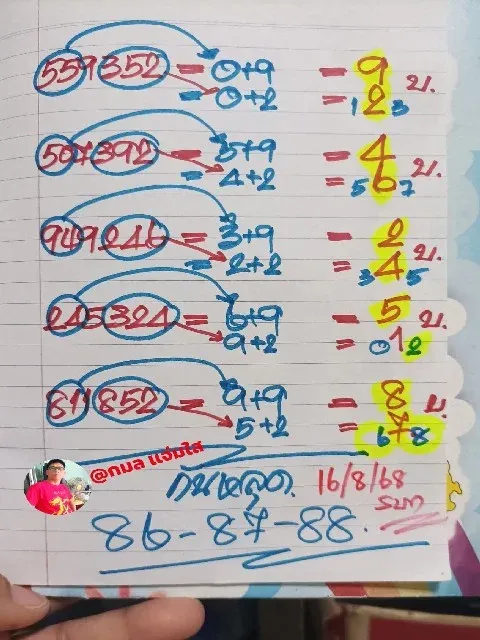 559352 = 0+9 = 9 น.
= 0+2 = 1 2 3
507392 = 5+9 = 4 น.
= 4+2 = 5 6 7
949246 = 3+9 = 2 น.
= 2+2 = 3 4 5
245324 = 6+9 = 5 น.
9+2 = 0 1 2
811852 = 9+9 = 8 น.
5+2 = 6 7 8
@กมล แจ่มใส
กันหลุด. 16/8/68
86-87-88.